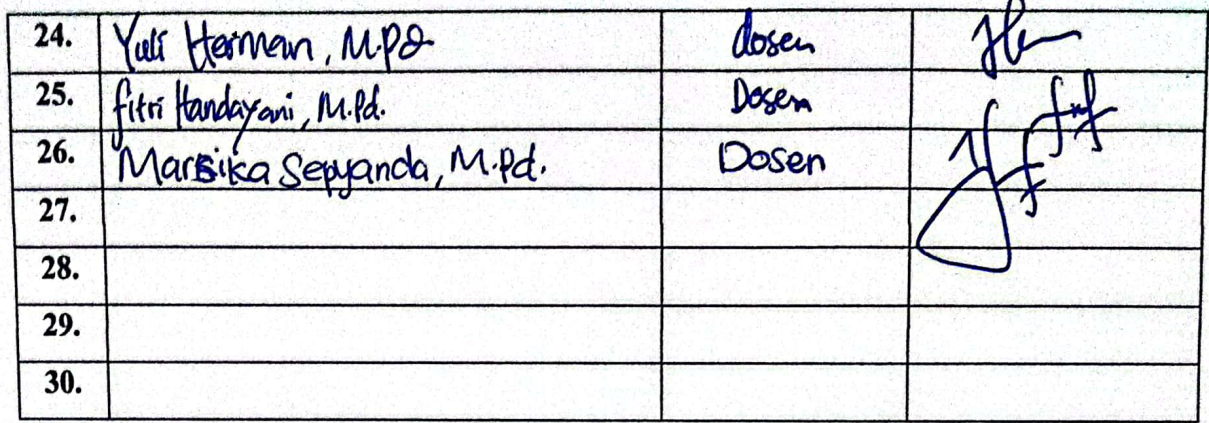 24. Yuli Herman, M.Pd dosen
25. fitri Handayani, M.Pd. Dosen
26. Marsika Sepyanda, M.Pd. Dosen
27.
28.
29.
30.